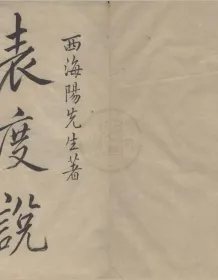 表度說
西海陽先生著